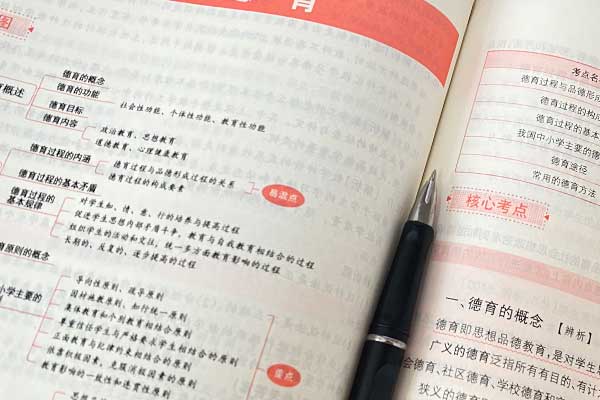 育
图
育概述
德育的概念
德育的功能
社会性功能、个体性功能、教育性功能
德育目标
德育内容
政治教育、思想教育
道德教育、心理健康教育
德育过程的内涵
德育过程与品德形成过程的关系
德育过程的构成要素
易混点
德育过程的基本矛盾
德育过程的
基本规律
对学生知、情、意、行的培养与提高过程
促进学生思想内部矛盾斗争、教育与自我教育相结合的过程
组织学生的活动和交往，统一多方面教育影响的过程
长期的、反复的、逐步提高的过程
育原则的概念
小学主要的
导向性原则、疏导原则
因材施教原则、知行统一原则
集体教育和个别教育相结合原则
尊重信任学生与严格要求学生相结合的原则
正面教育与纪律约束相结合的原则
依靠积极因素，克服消极因素的原则
教育影响的一致性和连贯性原则
重点
考点名
德育过程与品德形成
德育过程的构成
德育过程的基本
我国中小学主要的德
德育途径
常用的德育方法
核心考点
一、德育的概念 【辨析】
德育即思想品德教育，是对学生
广义的德育泛指所有有目的、有计
会德育、社区德育、学校德育和
狭义的德育